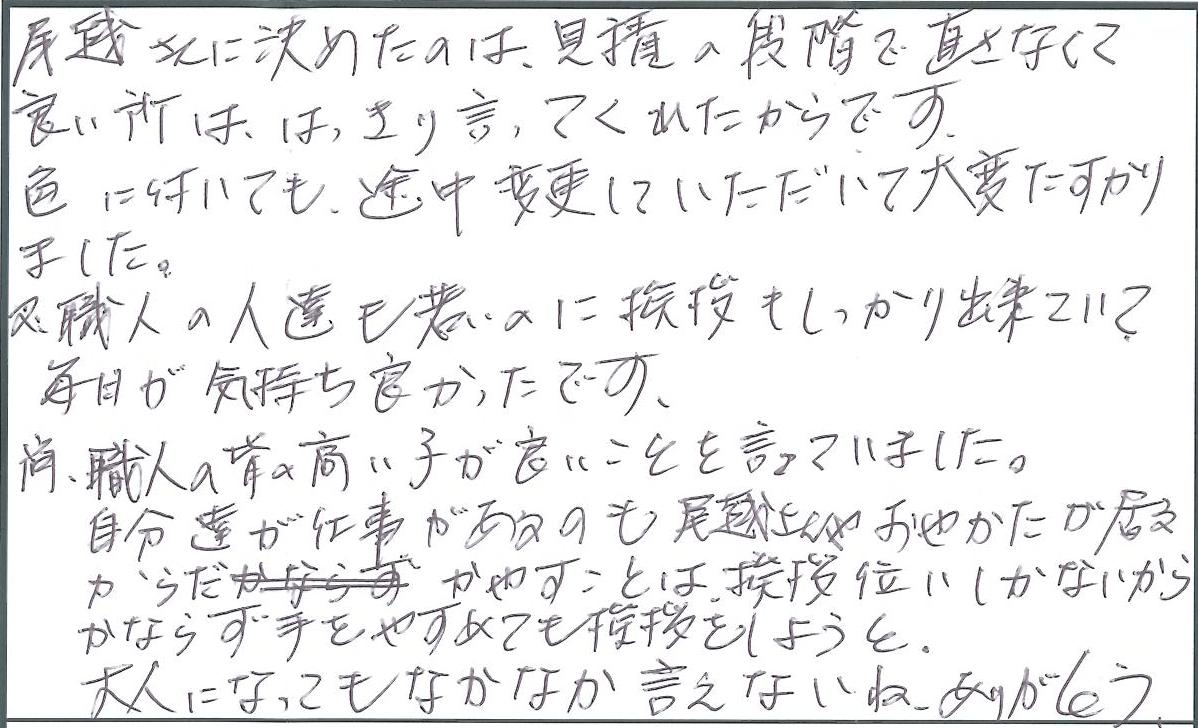 尾越さんに決めたのは、見積の段階で直さなくて
良い所は、はっきり言ってくれたからです。
色に付いても、途中変更していただいて大変たすかり
ました。
又、職人の人達も若いのに挨拶もしっかり出来ていて
毎日が気持ち良かったです、
尚、職人の背の高い子が良いことを言っていました。
自分達が仕事があるのも尾越さんやおやかたが居る
からだかならず かやすことは、挨拶位いしかないから
かならず手をやすめても挨拶をしようと。
大人になってもなかなか言えないね、ありがとう